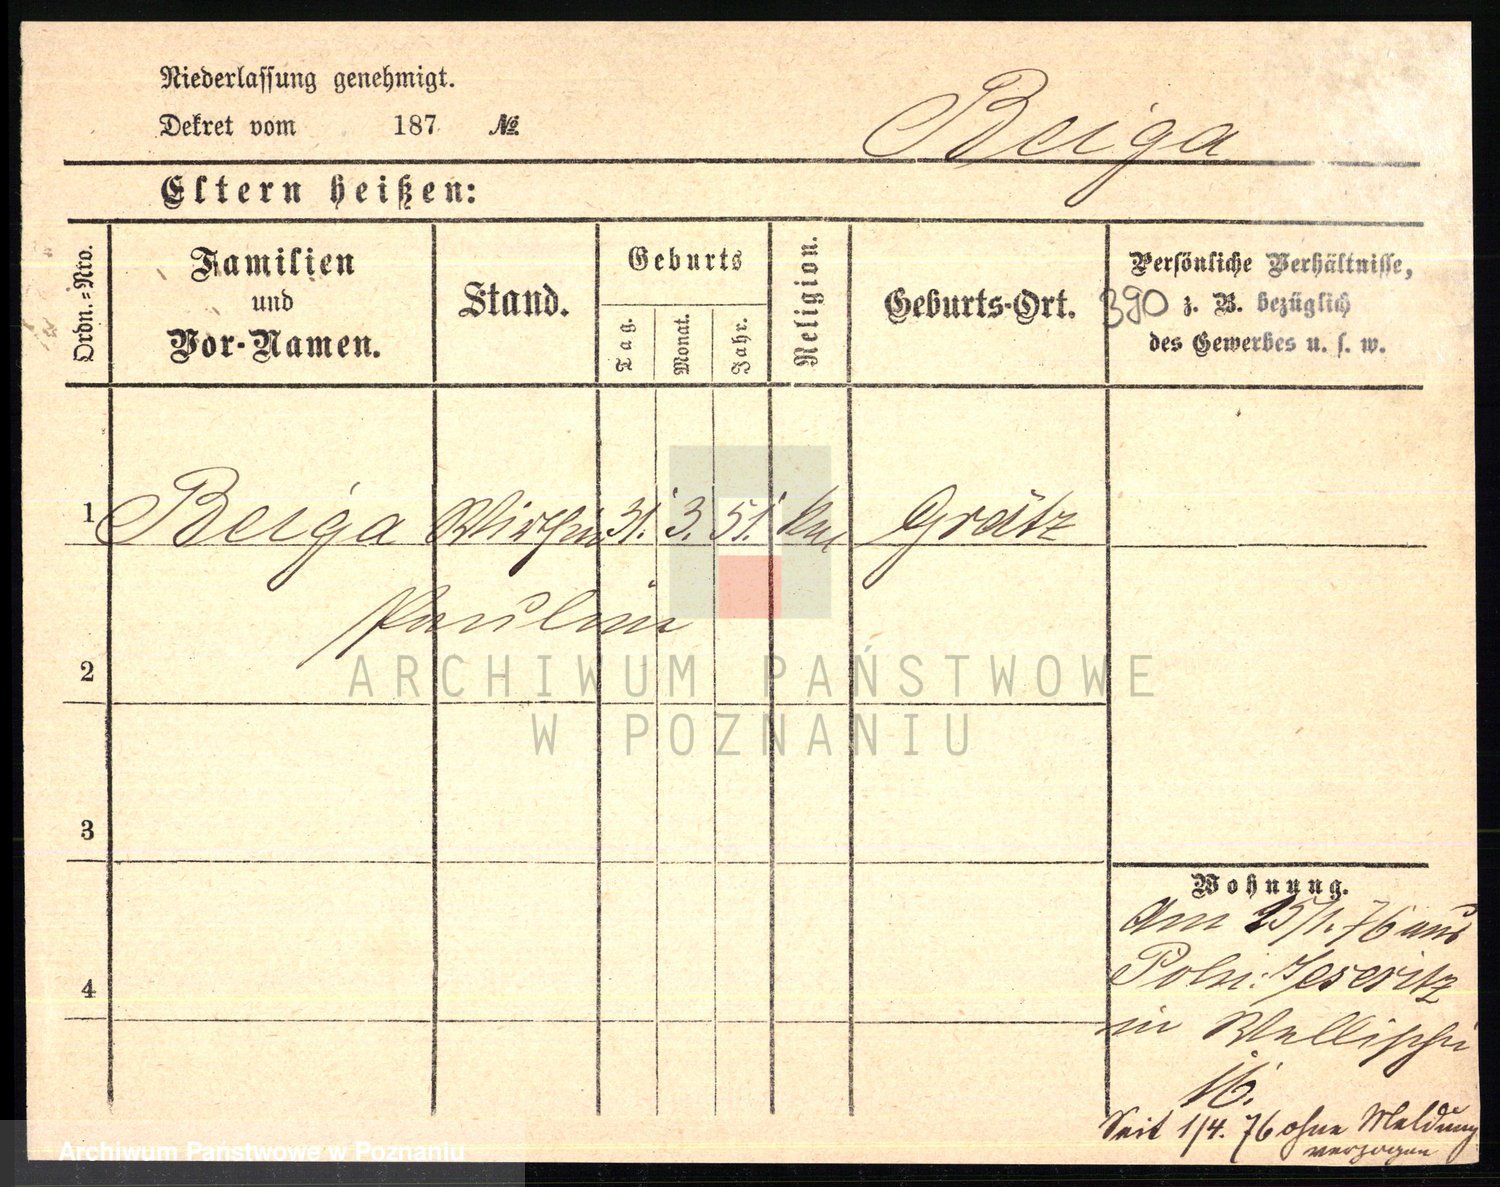 Niederlassung genehmigt.
Dekret vom 187 №
Beiga
Eltern heißen:
Ordn.=Nro.
Familien
und
Vor-Namen.
Stand.
Geburts
Tag.
Monat.
Jahr.
Religion.
Geburts-Ort.
Persönliche Verhältnisse,
390 z. B. bezüglich
des Gewerbes u. s. w.
1 Beiga Wirthin 31. 3. 51. Grätz
Pauline
2
3
4
Wohnung.
Am 15/1. 76 aus
Poln: Jeseritz
in Wallischei
16.
Seit 1/4. 76 ohne Meldung
verzogen
ARCHIWUM PAŃSTWOWE
W POZNANIU
Archiwum Państwowe w Poznaniu